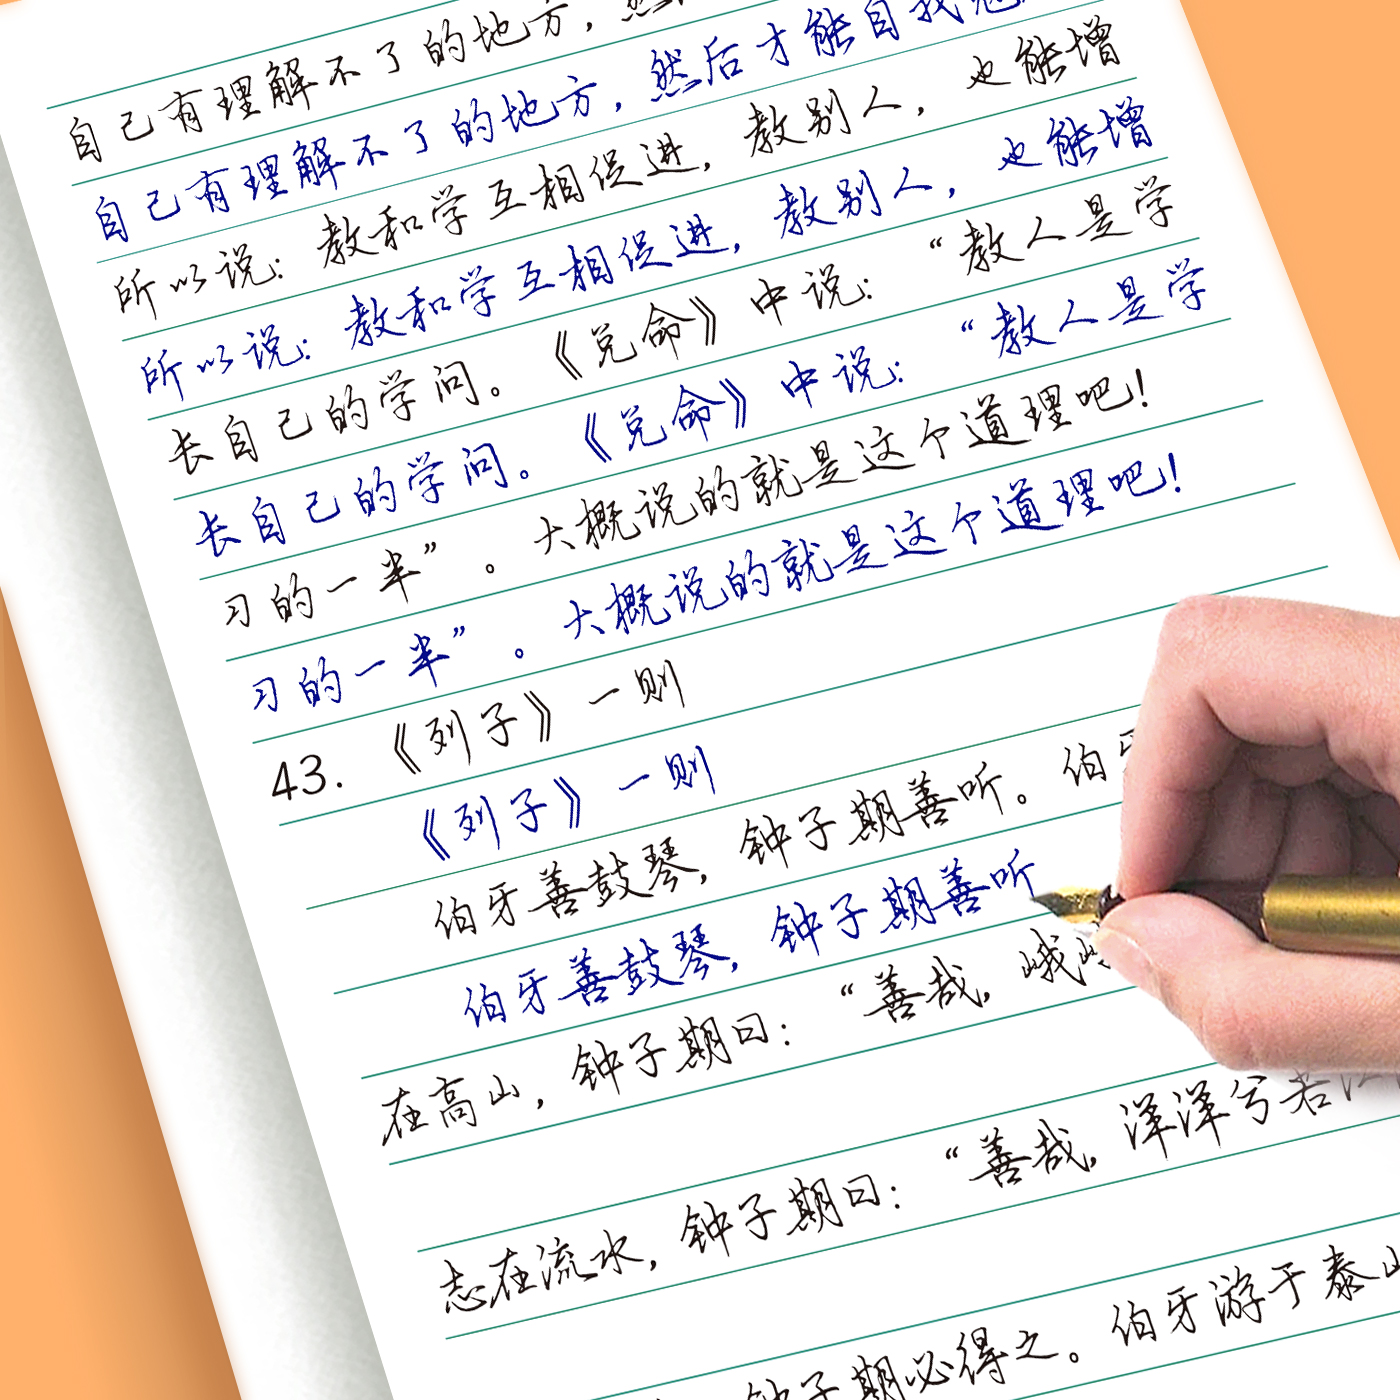 自己有理解不了的地方，然
自己有理解不了的地方，然后才能自我
所以说：教和学互相促进，教别人，也能增
所以说：教和学互相促进，教别人，也能增
长自己的学问。《兑命》中说：“教人是学
长自己的学问。《兑命》中说：“教人是学
习的一半”。大概说的就是这个道理吧！
习的一半”。大概说的就是这个道理吧！
43.《列子》一则
《列子》一则
伯牙善鼓琴，钟子期善听。伯牙
伯牙善鼓琴，钟子期善听
在高山，钟子期曰：“善哉，峨峨
志在流水，钟子期曰：“善哉，洋洋兮若江
钟子期必得之。伯牙游于泰山